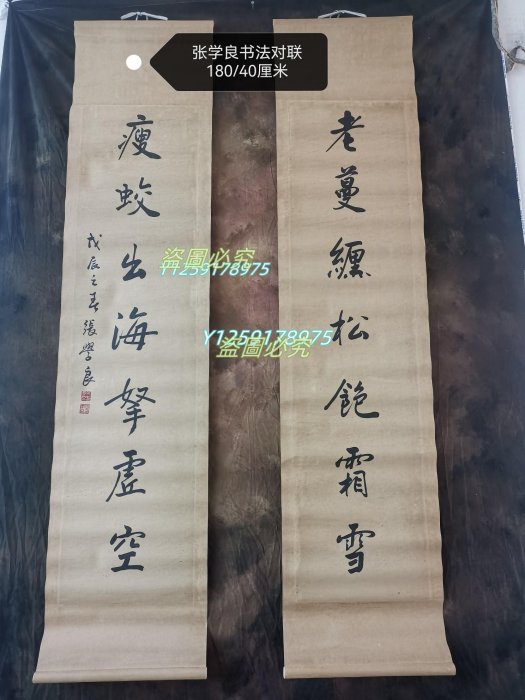 张学良书法对联
180/40厘米
老蔓纏松飽霜雪
瘦蛟出海拏虛空
戊辰之春張學良
盜圖必究
Y1259178975
Y1259178975
盜圖必究